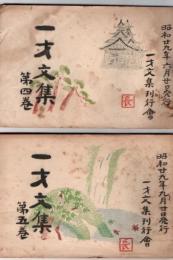 昭和廿九年六月廿日発行
一才文集刊行會
一才文集
第四巻
昭和廿九年九月廿日発行
一才文集刊行會
一才文集
第五巻